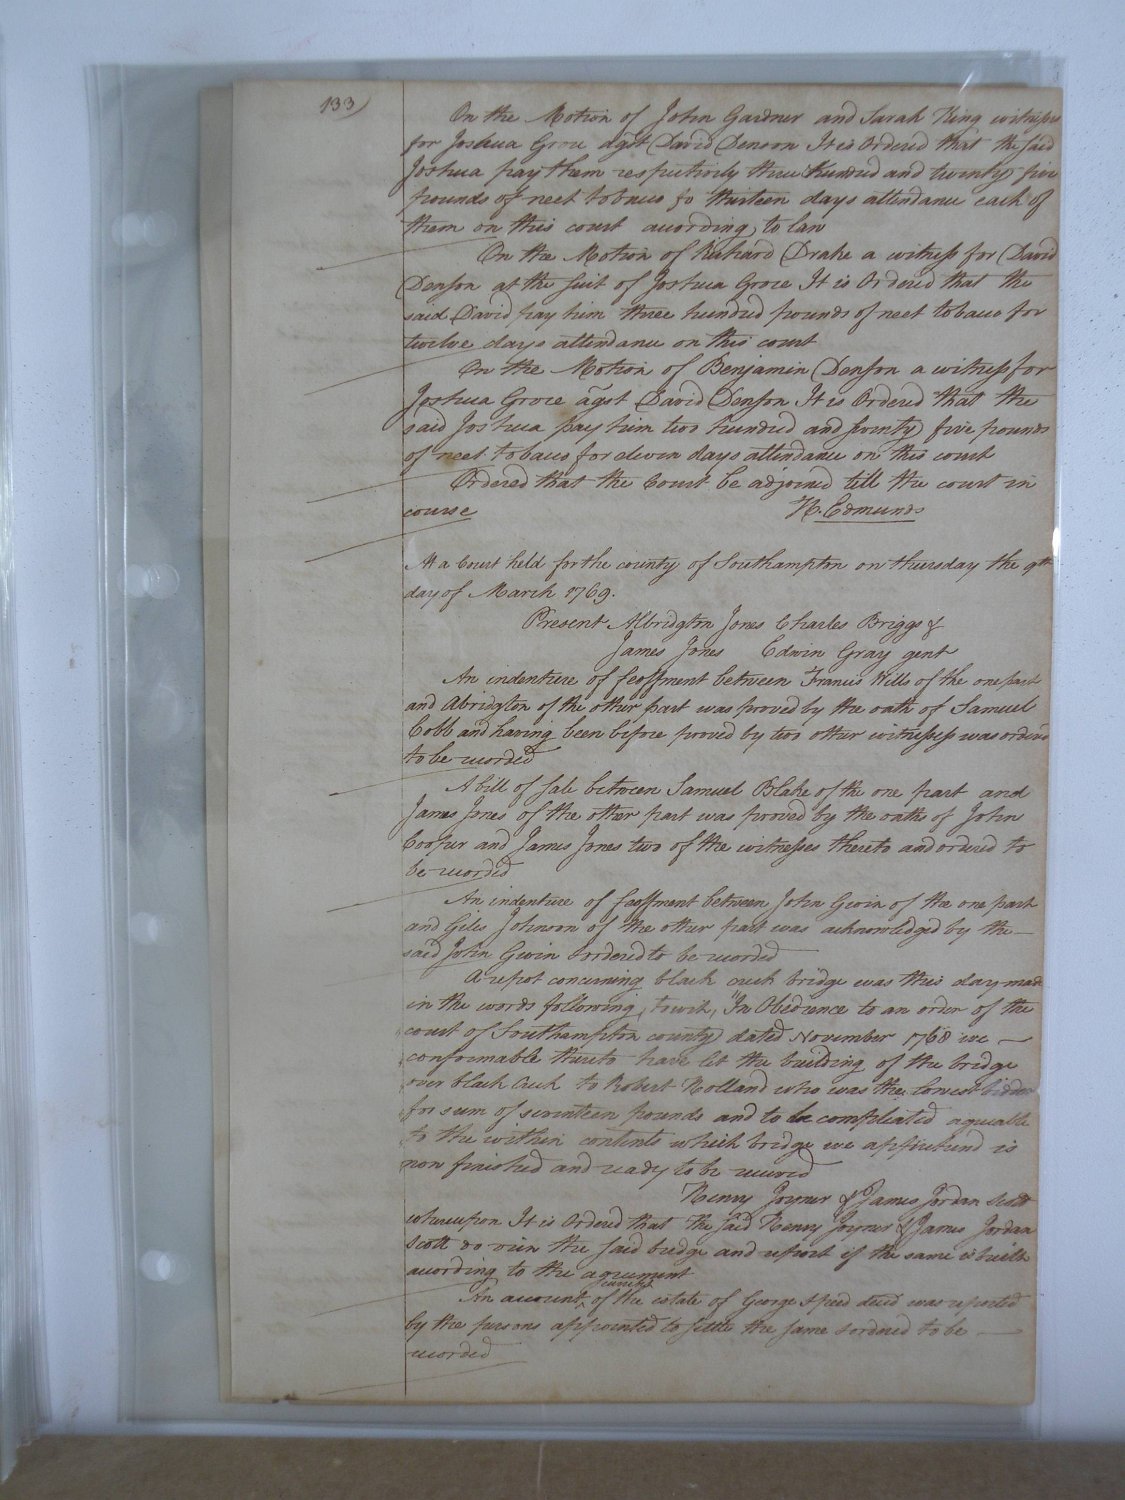 133)
On the Motion of John Gardner and Sarah King witnesses
for Joshua Grove agst David Denson It is Ordered that the said
Joshua pay them respectively three hundred and twenty five
pounds of neet tobacco fo thirteen days attendance each of
them on this court according to law
On the Motion of Richard Drake a witness for David
Denson at the suit of Joshua Grove It is Ordered that the
said David pay him three hundred pounds of neet tobacco for
twelve days attendance on this court
On the Motion of Benjamin Denson a witness for
Joshua Grove agst David Denson It is Ordered that the
said Joshua pay him two hundred and seventy five pounds
of neet tobacco for eleven days attendance on this court
Ordered that the Court be adjorned till the court in
course H. Edmunds
At a Court held for the county of Southampton on thursday the 9th
day of March 1769.
Present Albridgton Jones Charles Briggs &
James Jones Edwin Gray gent
An indenture of feoffment between Francis Hills of the one part
and Abridgton of the other part was proved by the oath of Samuel
Cobb and having been before proved by two other witnesses was ordered
to be recorded
A bill of sale between Samuel Blake of the one part and
James Jones of the other part was proved by the oaths of John
Cooper and James Jones two of the witnesses thereto and ordered to
be recorded
An indenture of feoffment between John Gwin of the one part
and Giles Johnson of the other part was acknowledged by the
said John Gwin & ordered to be recorded
A repot concerning black creek bridge was this day made
in the words following, towit, "In Obedience to an order of the
court of Southampton county dated November 1768 we
conformable thereto have let the building of the bridge
over black Creek to Robert Holland who was the lowest bidder
for sum of seventeen pounds and to be compleated agreeable
to the within contents which bridge we apprehend is
now finished and ready to be received
Henry Joyner & James Jordan Scott
whereupon It is Ordered that the said Henry Joyner & James Jordan
Scott do view the said bridge and report if the same is built
according to the agreement
An account current of the estate of George Speed decd was reported
by the persons appointed to settle the same & ordered to be
recorded